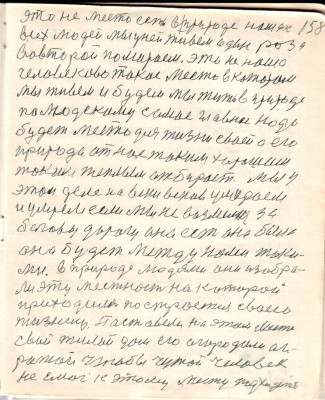 это не место есть в природе наших 158
всех людей мы у ней живем один раз а
во второй помираем, это не наше
человеково такое место в котором
мы живем и будем мы жить в природе
по людскому самое главное надо
будет место для жизни своей а его
природа от нас таким хорошим
таким теплым отбирает. мы у
этом деле на веки веков умираем
и умрем если мы не возьмемся за
богову дорогу она есть она была
она будет между нами таки-
ми. В природе людями они избра-
ли эту местность на которой
приходилось построится своею
жизнию. Поставили на этом месте
свой жилой дом его огородили ог-
радой чтобы чужой человек
не смог к этому месту подходить